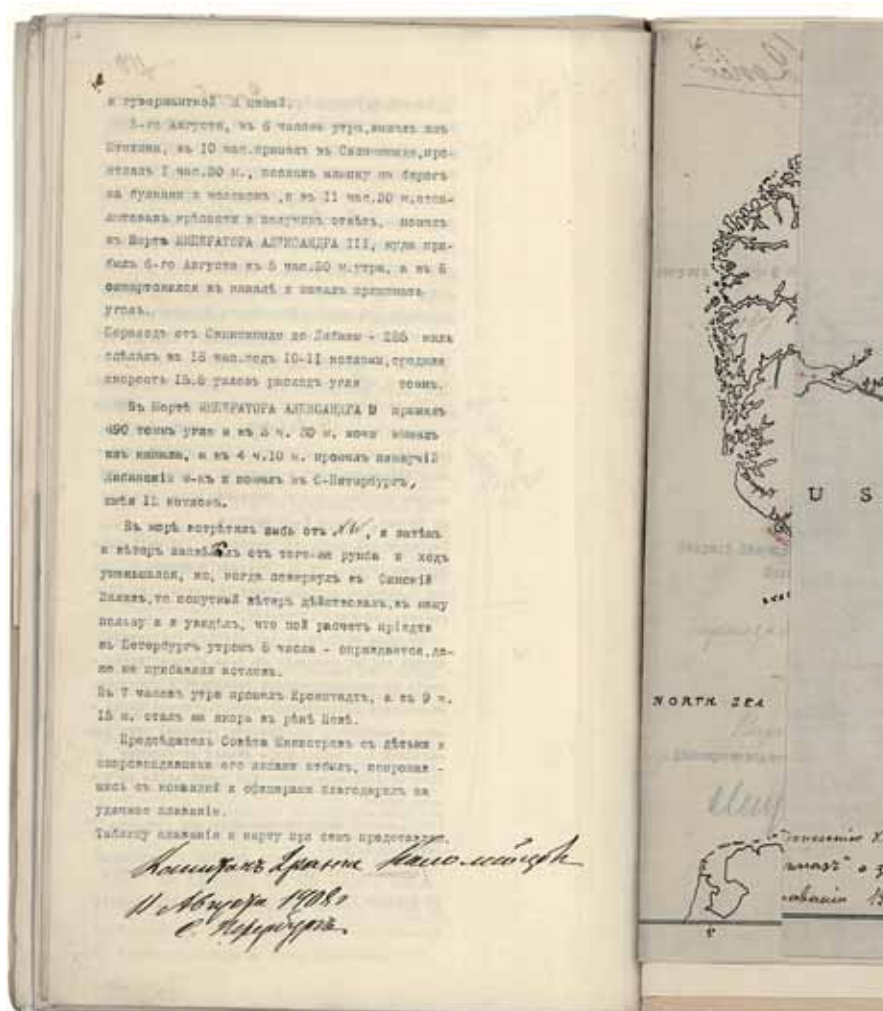 и гувернанткой и няней.
5-го Августа, въ 6 часовъ утра, вышелъ изъ
Штетина, въ 10 час. пришелъ въ Свинемюнде, про-
стоялъ 1 час. 30 м., послалъ шлюпку на берегъ
за булками и мясомъ, и въ 11 час. 30 м.
крѣпости и получивъ отвѣтъ, пошелъ
въ Портъ ИМПЕРАТОРА АЛЕКСАНДРА III, куда при-
былъ 6-го Августа въ 5 час. 30 м. утра, а въ 8
ошвартовился въ каналѣ и началъ принимать
уголь.
Переходъ отъ Свинемюнде до Либавы - миль
сдѣлалъ въ 18 час. подъ 10-11 котлами, средняя
скорость 15.8 узловъ расходъ угля тоннъ.
Въ Портѣ ИМПЕРАТОРА АЛЕКСАНДРА принялъ
490 тоннъ угля и въ 3 ч. 30 м. ночи вышелъ
изъ канала, а въ 4 ч. 10 м. прошелъ пловучій
Либавскій м-къ и пошелъ въ С-Петербургъ,
имѣя 12 котловъ.
Въ морѣ встрѣтилъ зыбь отъ NW, и затѣмъ
и вѣтеръ отъ того-же румба и ходъ
уменьшился, но, когда повернулъ въ Финскій
Заливъ, то попутный вѣтеръ дѣйствовалъ, въ нашу
пользу и я увидѣлъ, что мой расчетъ прійдти
въ Петербургъ утромъ 8 числа - оправдается, да-
же не прибавляя котловъ.
Въ 7 часовъ утра прошелъ Кронштадтъ, а въ 9 ч.
15 м. сталъ на якорь въ рѣкѣ Невѣ.
Предсѣдатель Совѣта Министровъ съ дѣтьми и
сопровождавшими его лицами отбылъ, попрощав-
шись съ командой и офицерами благодарилъ за
удачное плаваніе.
Таблицу плаванія и карту при семъ представляю.
Капитанъ 2 ранга
11 Августа 1908 г
С. Петербургъ
U S
NORTH SEA